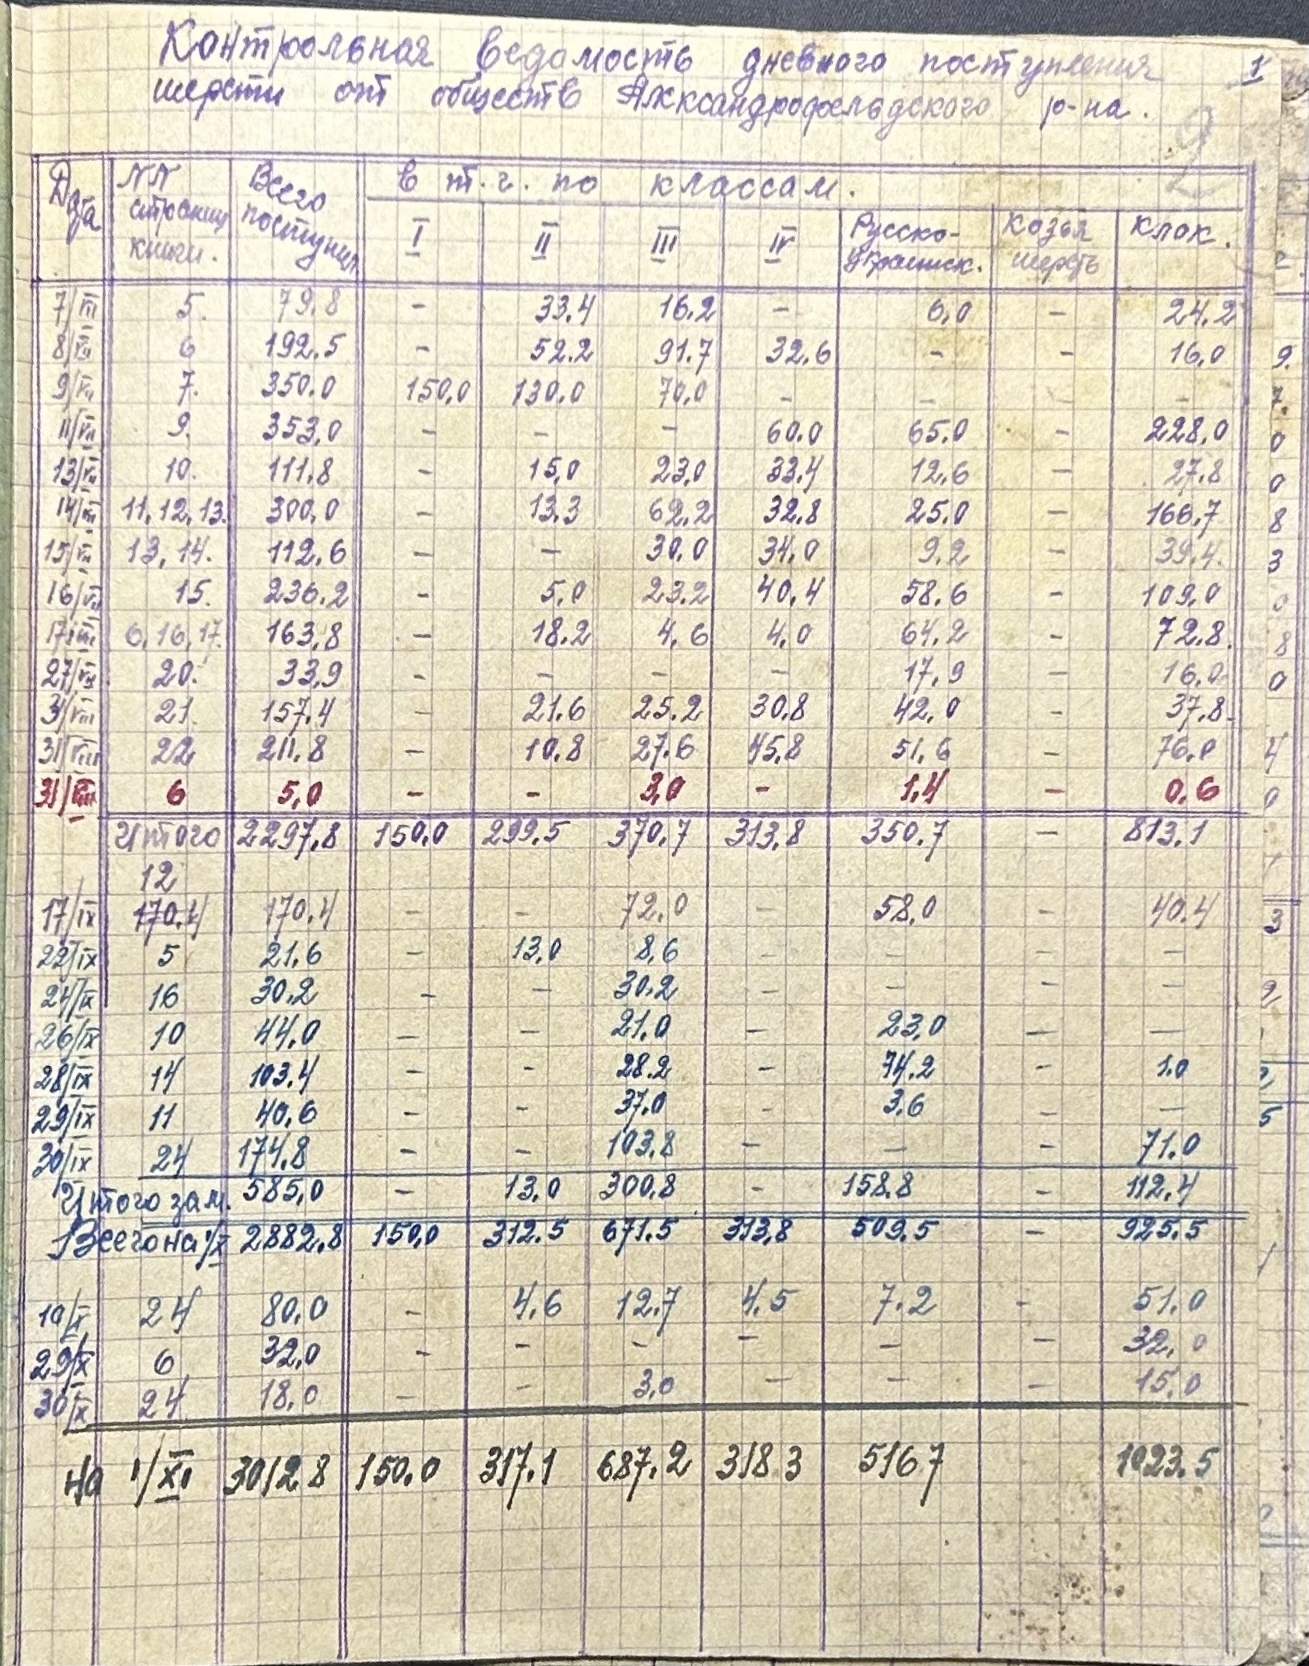 Контрольная ведомость дневного поступления 1
шерсти от обществ Александрофельдского р-на.
2
Дата NN страниц книги. Всего поступил в т.г. по классам.
I II III IV Русско-украинск. козья шерсть клок.
7/VII 5. 79.8 - 33.4 16.2 - 6,0 - 24.2
8/VII 6 192.5 - 52.2 91.7 32.6 - - 16,0
9/VII 7. 350.0 150,0 130.0 70,0 - - - -
11/VII 9. 353,0 - - - 60.0 65.0 - 228,0
13/VII 10. 111.8 - 15,0 23,0 33.4 12,6 - 27.8
14/VII 11,12,13. 300,0 - 13.3 62.2 32.8 25.0 - 166,7
15/VII 13, 14. 112,6 - - 30.0 34,0 9,2 - 39.4.
16/VII 15. 236.2 - 5,0 23.2 40,4 58,6 - 109,0
17/VII 6,16,17. 163,8 - 18.2 4,6 4,0 64,2 - 72.8.
27/VII 20. 33,9 - - - - 17,9 - 16,0
3/VIII 21. 157,4 - 21.6 25.2 30.8 42,0 - 37,8.
31/VIII 22 211.8 - 10.8 27.6 45,8 51,6 - 76.0
31/VIII 6 5,0 - - 3,0 - 1,4 - 0,6
Итого 2297,8 150,0 299.5 370,7 313,8 350.7 - 813.1
12
17/IX 170.4 170,4 - - 72,0 - 58,0 - 40.4
22/IX 5 21,6 - 13,0 8,6 - - - -
24/IX 16 30,2 - - 30.2 - - - -
26/IX 10 44,0 - - 21.0 - 23,0 - -
28/IX 14 103.4 - - 28.2 - 74,2 - 1.0
29/IX 11 40,6 - - 37.0 - 3.6 - -
30/IX 24 174,8 - - 103,8 - - - 71.0
Итого за м. 585,0 - 13,0 300,8 - 158.8 - 112.4
Всего на 1/X 2882,8 150,0 312.5 671.5 313,8 509,5 - 925.5
19/X 24 80,0 - 4.6 12.7 4.5 7.2 - 51.0
29/X 6 32,0 - - - - - - 32,0
30/X 24 18,0 - - 3,0 - - - 15,0
на 1/XI 3012 8 150.0 317,1 687.2 318 3 516 7 1023.5